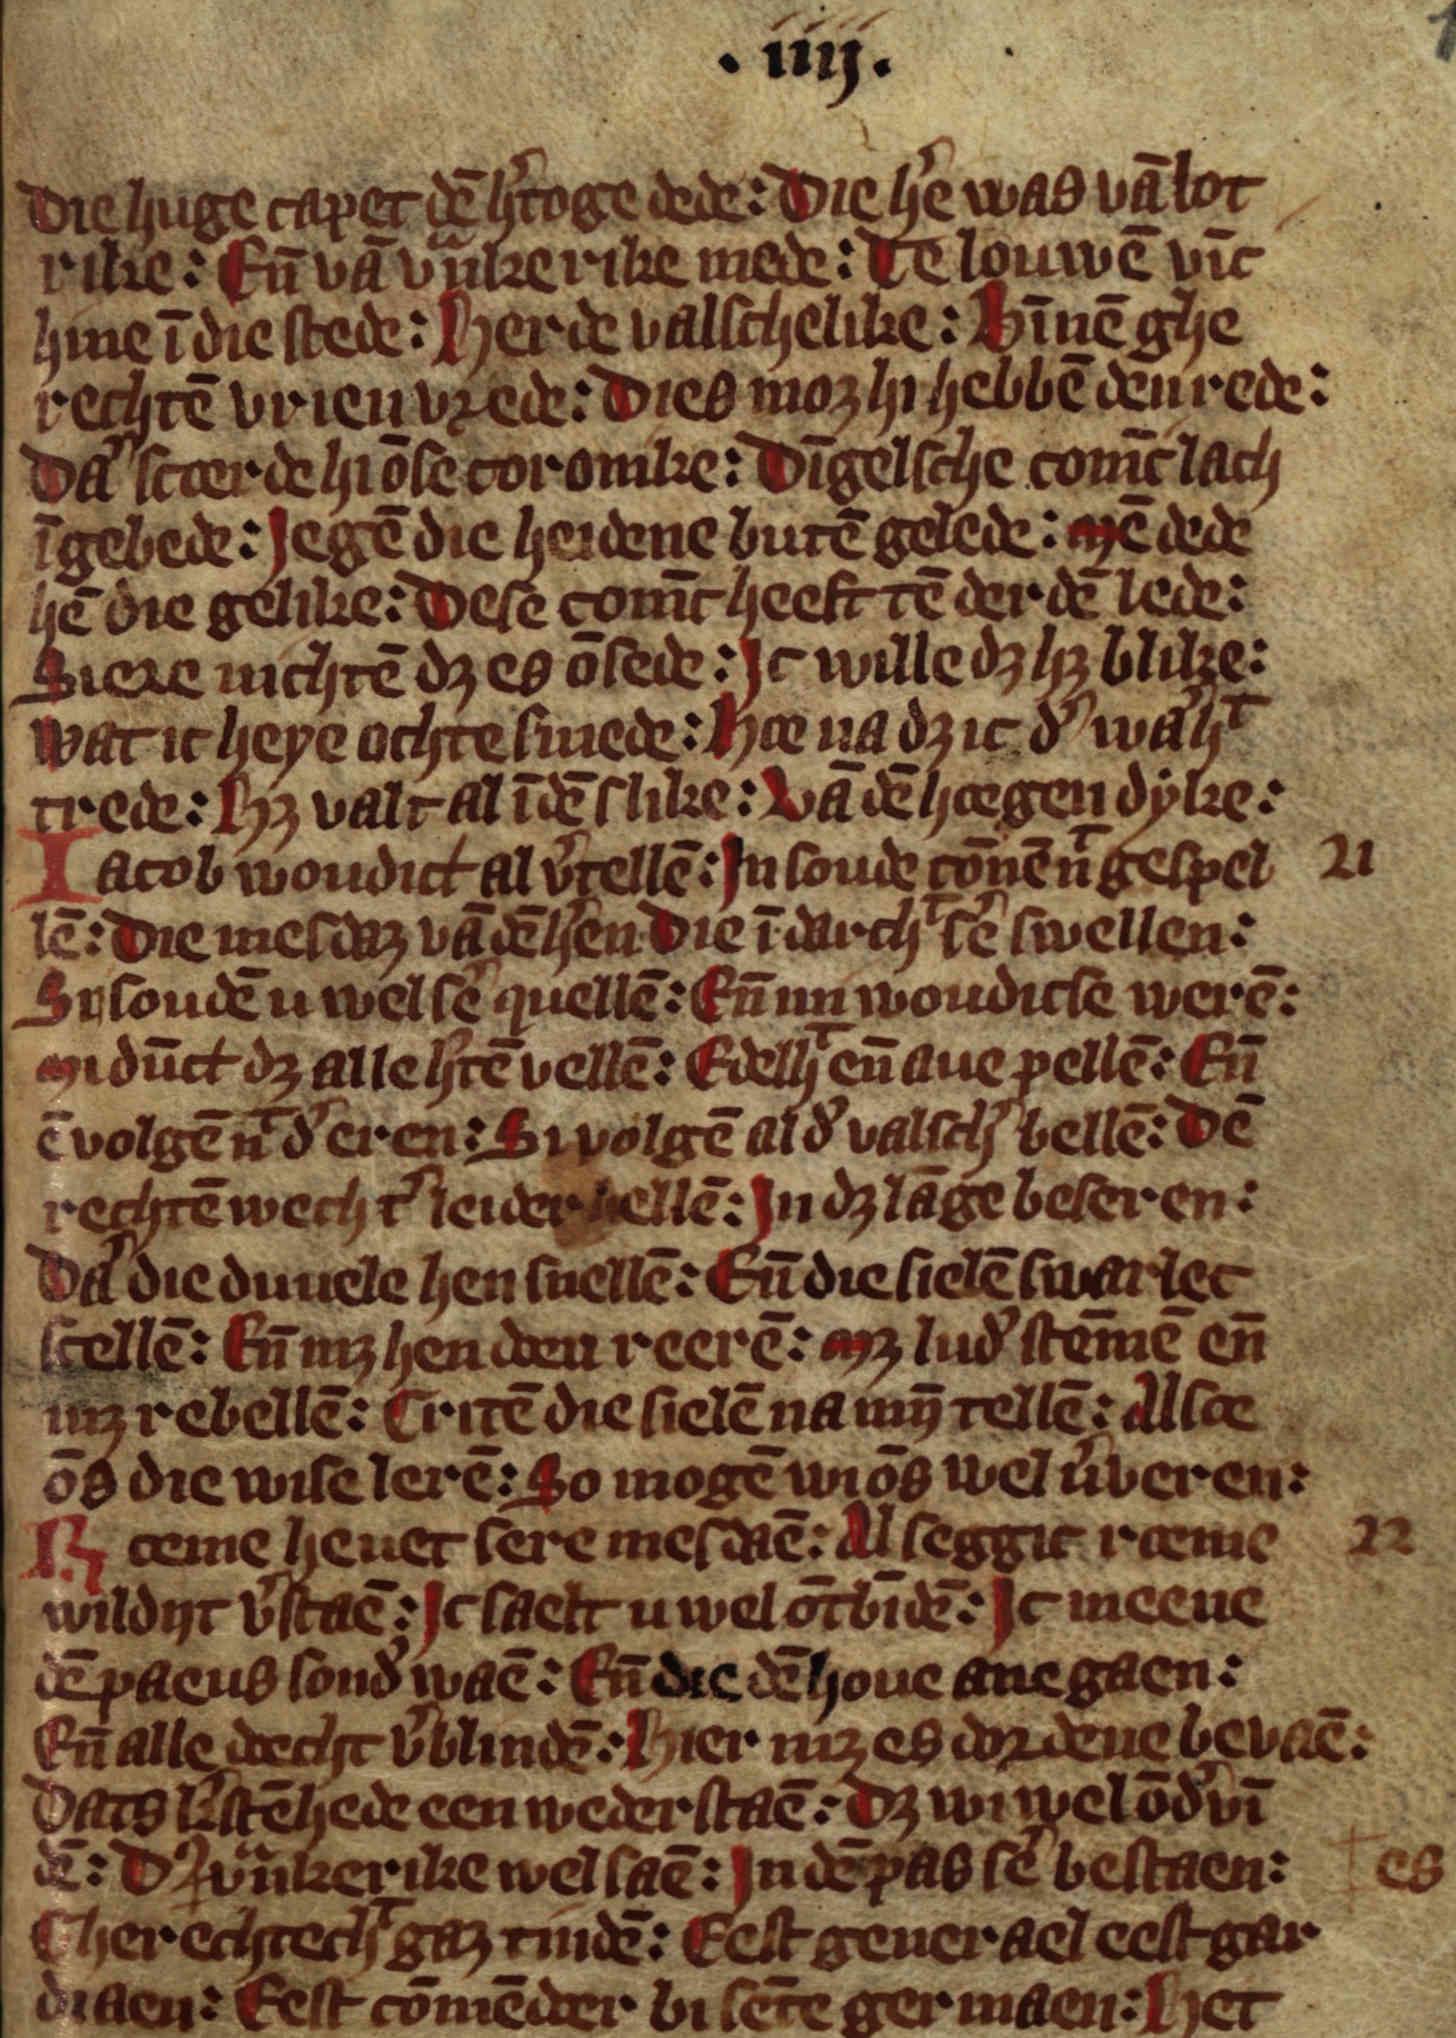 · iiij ·
Die huge capet dē h'toge dede: Die h'e was vā lot
rike: Eñ vā vᵃnkerike mede: Te louwē vīc
hine ī die stede: Herde valschelike: Bīnē ghe
rechtē vrien vrede: Dies moꝫ hi hebbē den rede:
Da' stoerde hi ōse coronike: Dīgelsche com̄t lach
ī gebede: Jegē die heidene butē gelede: Mē dede
hē die gelike: Dese com̄t heeft tē derdē lede:
Siere nichtē dꝫ es ōsede: Jc wille dꝫ hꝫ blike:
Wat ic heye ochte smede: Hoe na dꝫ ic d' wa'hᵗ
trede: Hꝫ valt al ī dē slike: Vā dē hoegen dyke:
Iacob woudict al v'tellē: Jn soude cōnē nᵗ gespel 21
lē: Die mesdaꝫ vā dē h'en Die ī darchᵗ se' swellen:
Si soudē u wel se' quellē: Eñ im woudicse werē:
Mi dūct dꝫ alle h'tē vellē: Edelhᵗ eñ aue pellē: Eñ
ē volgē nᵗ d' eren: Si volgē al d' valsch' bellē: Dē
rechtē wech t' leider hellē: Jn dꝫ lāge beseren:
Da' die duuele hen snellē: Eñ die sielē swarlec
stellē: Eñ mꝫ hen doen reerē: Mꝫ lud' stēmē eñ
mꝫ rebellē: Critē die sielē na mȳ tellē: Alsoe
ōs die wise lerē: So mogē wi ōs wel v'veren:
Roeme heuet sere mesdaē: Al seggic roeme 22
wildijt v'staē: Jc saelt u wel ōtbīdē: Jc meene
dē paeus sond' waē: Eñ die dē houe ane gaen:
Eñ alle doecht v'blindē: Hier mꝫ es dordene bevaē:
Dats k'stēhede een wederstaē: Dꝫ wi wel ōd'vī
dē: D' vᵃnkerike wel saē: Jn dē pas se' bestaen: es
Gherechtechᵗ gaꝫ tindē: Eest generael eest gar
diaen: Eest cōmēdoer bi sēte germaen: Het